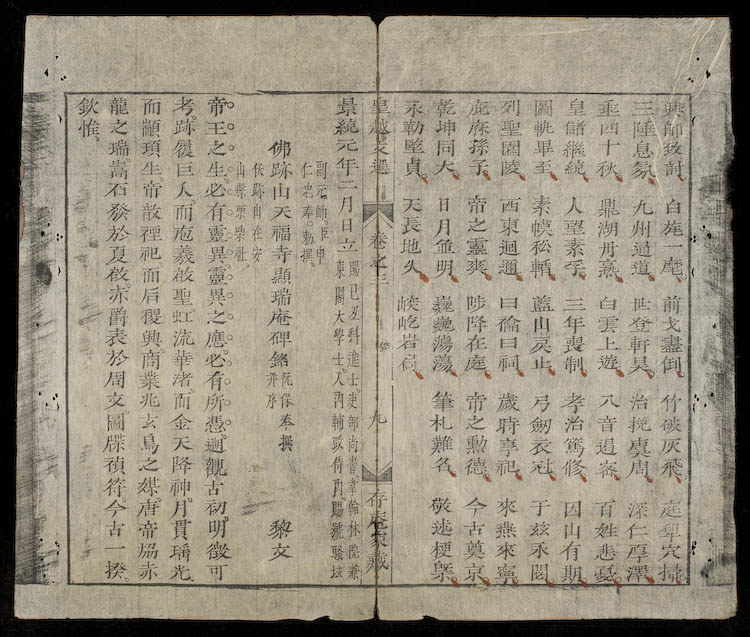 興師致討 白旄一麾 前戈盡倒 竹破灰飛 庭犂穴掃
三陲息氛 九州通道 世登軒昊 治挽虞周 深仁厚澤
垂四十秋 鼎湖丹熟 白雲上遊 八音遏密 百姓悲憂
皇儲繼統 人望素孚 三年喪制 孝治篤修 因山有期
圖軌畢至 素幙松輴 藍山戾止 弓劒衣冠 于玆永閟
列聖園陵 西東迴邇 曰禴曰祠 歲時享祀 來燕來寧
庇庥孫子 帝之靈爽 陟降在庭 帝之勲德 今古奠京
乾坤同大 日月並明 巍巍蕩蕩 筆札難名 敬述梗槩
永勒堅貞 天長地久 峻屹岩扃
皇越文選 卷之三 九 存庵家藏
景統元年二月日立
副元帥臣申
仁忠奉勅撰
科進士吏部尚書掌翰林院兼
東閣大學士入內輔政
佛跡山天福寺顯瑞庵碑銘 并序 阮保奉撰 黎文
佛跡山在安
山縣柴社
帝王之生必有靈異靈異之應必有所憑迥觀古初明徵可
考跡履巨人而庖羲啟聖虹流華渚而金天降神月貫瑤光
而顓頊生帝敔禋祀而后稷興商業兆玄鳥之媒唐帝協赤
龍之瑞嵩石發於夏啟赤爵表於周文圖牒禎符今古一揆
欽惟